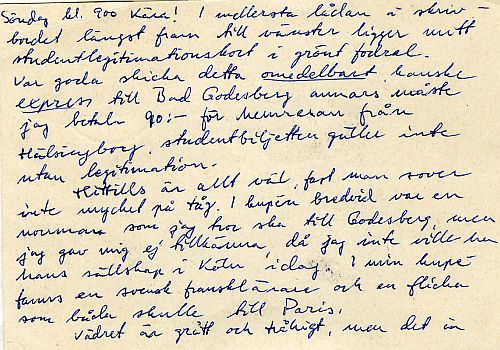 Söndag kl. 900 Kära! I mellersta lådan i skriv-
bordet längst fram till vänster ligger mitt
studentlegitimationskort i grönt fodral.
Var goda skicka detta omedelbart, kanske
express till Bad Godesberg annars måste
jag betala 90:- för hemresan från
Hälsingborg, studentbiljetten gäller inte
utan legitimation.
Hittills är allt väl, fast man sover
inte mycket på tåg. I kupén bredvid var en
norrman som jag tror ska till Godesberg, men
jag gav mig ej tillkänna, då jag inte ville ha
hans sällskap i Köln idag. I min kupé
fanns en svensk fransklärare och en flicka
som båda skulle till Paris.
Vädret är grått och tråkigt, men det är